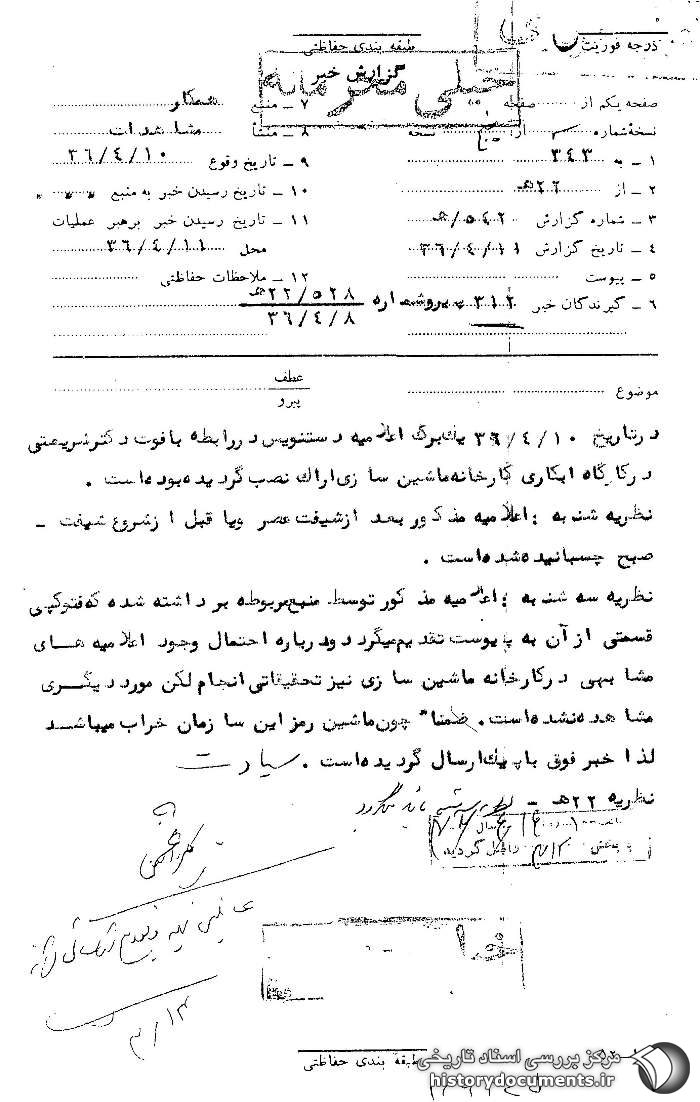 درجه فوریت
طبقه بندی حفاظتی
گزارش خبر
خیلی محرمانه
صفحه یکم از صفحه
نسخه شماره از نسخه
۱ ـ به ۳۴۳
۲ ـ از ۲۲هـ
۳ ـ شماره گزارش ۵۴۲/هـ
۴ ـ تاریخ گزارش ۳۶/۴/۱۱
۵ ـ پیوست
۶ ـ گیرندگان خبر ۳۱۲ پیرو شماره ۲۲/۵۲۸هـ
۳۶/۴/۸
۷ ـ منبع همکار
۸ ـ منشأ مشاهدات
۹ ـ تاریخ وقوع ۳۶/۴/۱۰
۱۰ ـ تاریخ رسیدن خبر به منبع
۱۱ ـ تاریخ رسیدن خبر برهبر عملیات
محل ۳۶/۴/۱۱
۱۲ ـ ملاحظات حفاظتی
موضوع
عطف
پیرو
درتاریخ ۳۶/۴/۱۰ یک برگ اعلامیه دستنویس در رابطه با فوت دکتر شریعتی
در کارگاه ابکاری کارخانه ماشین سازی اراک نصب گردیده بوده است .
نظریه شنبه : اعلامیه مذکور بعد از شیفت عصر ویا قبل از شروع شیفت ـ
صبح چسبانیده شده است .
نظریه سه شنبه : اعلامیه مذکور توسط منبع مربوطه برداشته شده که فتوکپی
قسمتی از آن به پیوست تقدیم میگردد و درباره احتمال وجود اعلامیه های
مشابهی در کارخانه ماشین سازی نیز تحقیقاتی انجام لکن مورد دیگری
مشاهده نشده است . ضمناً چون ماشین رمز این سازمان خراب میباشد
لذا خبر فوق با پیک ارسال گردیده است .
نظریه ۲۲هـ ـ
طبقه بندی حفاظتی
مرکز بررسی اسناد تاریخی
historydocuments.ir